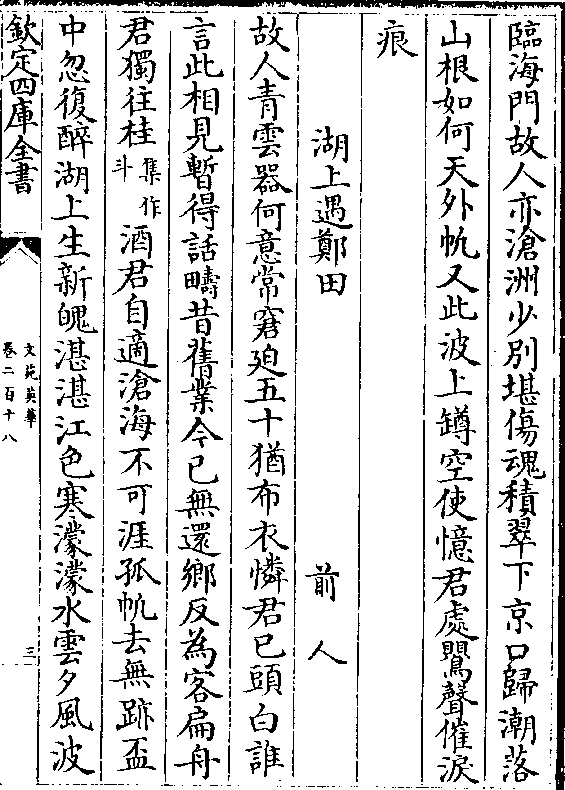 臨海門故人亦滄洲少別堪傷魂積翠下京口歸潮落
山根如何天外帆又此波上罇空使憶君處鸎聲催淚
痕
湖上遇鄭田 前人
故人青雲器何意常窘廹五十猶布衣憐君已頭白誰
言此相見暫得話疇昔舊業今已無還鄉反為客扁舟
君獨往桂集作斗酒君自適滄海不可涯孤帆去無跡盃
中忽復醉湖上生新魄湛湛江色寒濛濛水雲夕風波
欽定四庫全書
文苑英華
卷二百十八
三